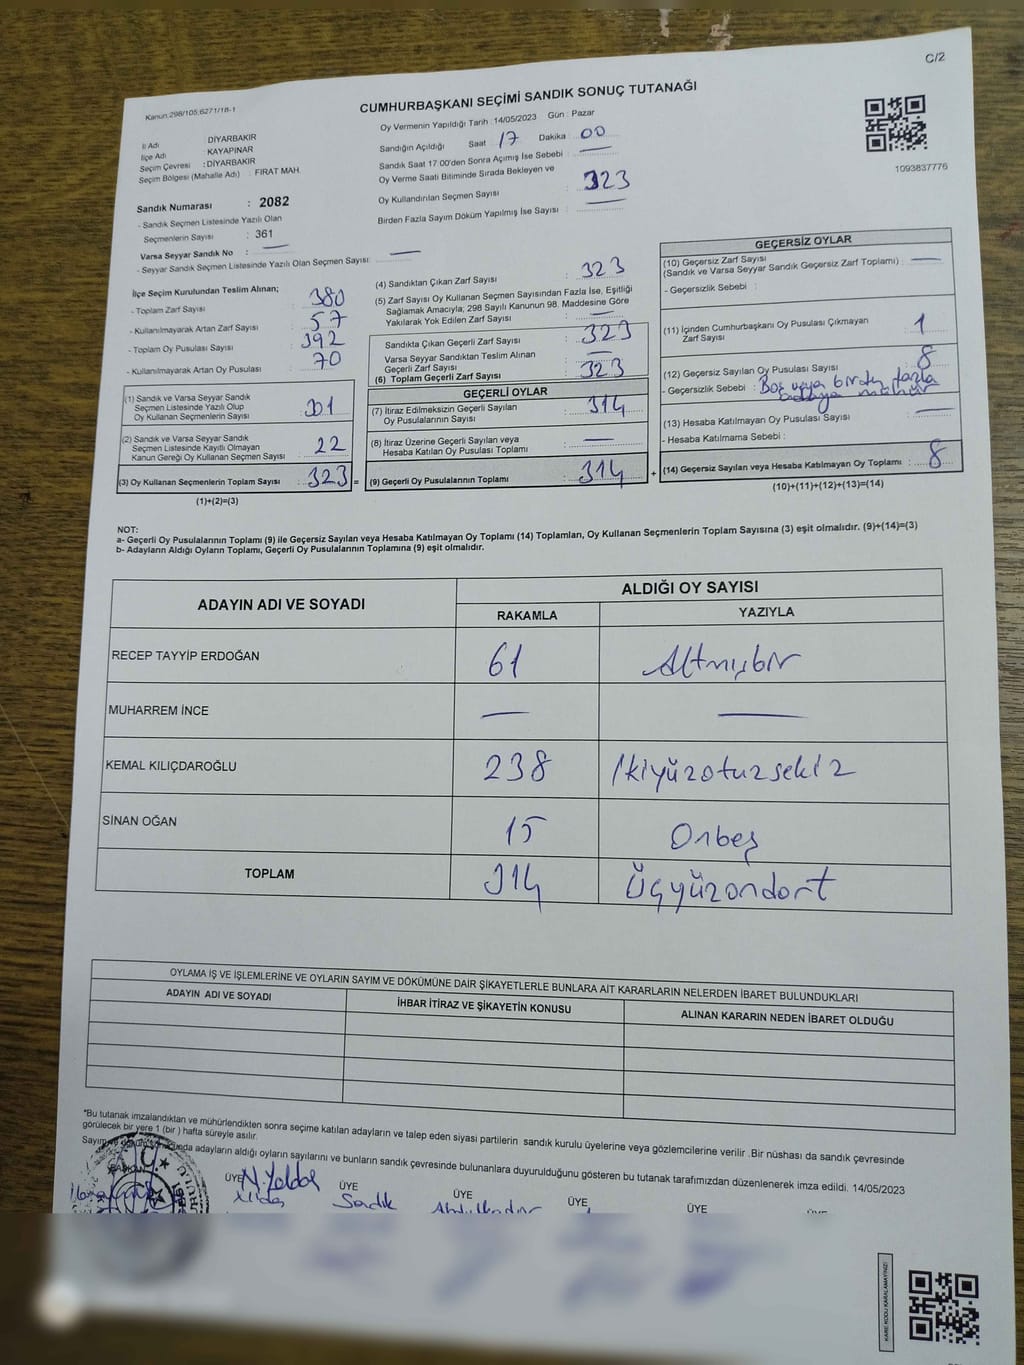 C/2
Kanun:298/105;6271/18-1
CUMHURBAŞKANI SEÇİMİ SANDIK SONUÇ TUTANAĞI
Oy Vermenin Yapıldığı Tarih :14/05/2023 Gün : Pazar
İl Adı : DİYARBAKIR
İlçe Adı : KAYAPINAR
Seçim Çevresi : DİYARBAKIR
Seçim Bölgesi (Mahalle Adı) : FIRAT MAH.
Sandığın Açıldığı Saat 17 Dakika : 00
Sandık Saat 17:00'den Sonra Açımış İse Sebebi : —
Oy Verme Saati Bitiminde Sırada Bekleyen ve
Oy Kullandırılan Seçmen Sayısı : 323
Birden Fazla Sayım Döküm Yapılmış İse Sayısı : —
1093837776
Sandık Numarası : 2082
- Sandık Seçmen Listesinde Yazılı Olan
Seçmenlerin Sayısı : 361
Varsa Seyyar Sandık No : —
- Seyyar Sandık Seçmen Listesinde Yazılı Olan Seçmen Sayısı: —
İlçe Seçim Kurulundan Teslim Alınan;
- Toplam Zarf Sayısı : 380
- Kullanılmayarak Artan Zarf Sayısı : 57
- Toplam Oy Pusulası Sayısı : 392
- Kullanılmayarak Artan Oy Pusulası : 70
(1) Sandık ve Varsa Seyyar Sandık
Seçmen Listesinde Yazılı Olup
Oy Kullanan Seçmenlerin Sayısı : 301
(2) Sandık ve Varsa Seyyar Sandık
Seçmen Listesinde Kayıtlı Olmayan
Kanun Gereği Oy Kullanan Seçmen Sayısı : 22
(3) Oy Kullanan Seçmenlerin Toplam Sayısı : 323 =
(1)+(2)=(3)
(4) Sandıktan Çıkan Zarf Sayısı : 323
(5) Zarf Sayısı Oy Kullanan Seçmen Sayısından Fazla İse, Eşitliği
Sağlamak Amacıyla; 298 Sayılı Kanunun 98. Maddesine Göre
Yakılarak Yok Edilen Zarf Sayısı : —
Sandıkta Çıkan Geçerli Zarf Sayısı : 323
Varsa Seyyar Sandıktan Teslim Alınan
Geçerli Zarf Sayısı : —
(6) Toplam Geçerli Zarf Sayısı : 323
GEÇERLİ OYLAR
(7) İtiraz Edilmeksizin Geçerli Sayılan
Oy Pusulasının Sayısı : 314
(8) İtiraz Üzerine Geçerli Sayılan veya
Hesaba Katılan Oy Pusulası Toplamı : —
(9) Geçerli Oy Pusulalarının Toplamı : 314 +
GEÇERSİZ OYLAR
(10) Geçersiz Zarf Sayısı
(Sandık ve Varsa Seyyar Sandık Geçersiz Zarf Toplamı) : —
- Geçersizlik Sebebi :
(11) İçinden Cumhurbaşkanı Oy Pusulası Çıkmayan
Zarf Sayısı : 1
(12) Geçersiz Sayılan Oy Pusulası Sayısı : 8
- Geçersizlik Sebebi : Boş veya birden fazla
adaya mühür
(13) Hesaba Katılmayan Oy Pusulası Sayısı : —
- Hesaba Katılmama Sebebi :
(14) Geçersiz Sayılan veya Hesaba Katılmayan Oy Toplamı : 8
(10)+(11)+(12)+(13)=(14)
NOT:
a- Geçerli Oy Pusulalarının Toplamı (9) ile Geçersiz Sayılan veya Hesaba Katılmayan Oy Toplamı (14) Toplamları, Oy Kullanan Seçmenlerin Toplam Sayısına (3) eşit olmalıdır. (9)+(14)=(3)
b- Adayların Aldığı Oyların Toplamı, Geçerli Oy Pusulalarının Toplamına (9) eşit olmalıdır.
ADAYIN ADI VE SOYADI
ALDIĞI OY SAYISI
RAKAMLA YAZIYLA
RECEP TAYYİP ERDOĞAN 61 Altmışbir
MUHARREM İNCE — —
KEMAL KILIÇDAROĞLU 238 İkiyüzotuzsekiz
SİNAN OĞAN 15 Onbeş
TOPLAM 314 Üçyüzondört
OYLAMA İŞ VE İŞLEMLERİNE VE OYLARIN SAYIM VE DÖKÜMÜNE DAİR ŞİKAYETLERLE BUNLARA AİT KARARLARIN NELERDEN İBARET BULUNDUKLARI
ADAYIN ADI VE SOYADI İHBAR İTİRAZ VE ŞİKAYETİN KONUSU ALINAN KARARIN NEDEN İBARET OLDUĞU
*Bu tutanak imzalandıktan ve mühürlendikten sonra seçime katılan adayların ve talep eden siyasi partilerin sandık kurulu üyelerine veya gözlemcilerine verilir .Bir nüshası da sandık çevresinde
görülecek bir yere 1 (bir ) hafta süreyle asılır.
adayların aldığı oyların sayılarını ve bunların sandık çevresinde bulunanlara duyurulduğunu gösteren bu tutanak tarafımızdan düzenlenerek imza edildi. 14/05/2023
BAŞKAN ÜYE ÜYE ÜYE ÜYE ÜYE
Sadık Abdulkadir
KARE KODU KARALAMAYINIZ!